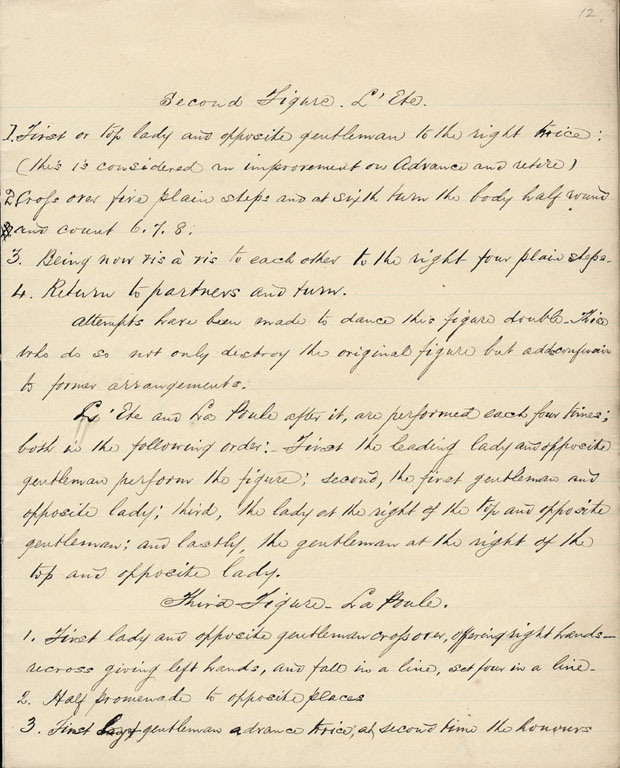 12.
Second Figure. L'Ete.
1. First or top lady and opposite gentleman to the right twice:
(this is considered an improvement on Advance and retire)
2. Cross over five plain steps and at sixth turn the body half round
and count 6. 7. 8.
3. Being now vis à vis to each other to the right four plain steps.
4. Return to partners and turn.
Attempts have been made to dance this figure double. Those
who do so not only destroy the original figure but add confusion
to former arrangements.
L'Ete and La Poule after it, are performed each four times;
both in the following order:- First the leading lady and opposite
gentleman perform the figure; second, the first gentleman and
opposite lady; third, the lady at the right of the top and opposite
gentleman; and lastly, the gentleman at the right of the
top and opposite lady.
Third Figure - La Poule.
1. First lady and opposite gentleman cross over, offering right hands-
recross giving left hands, and fall in a line, set four in a line.
2. Half promenade to opposite places
3. First gentleman advance twice, at second time the honours